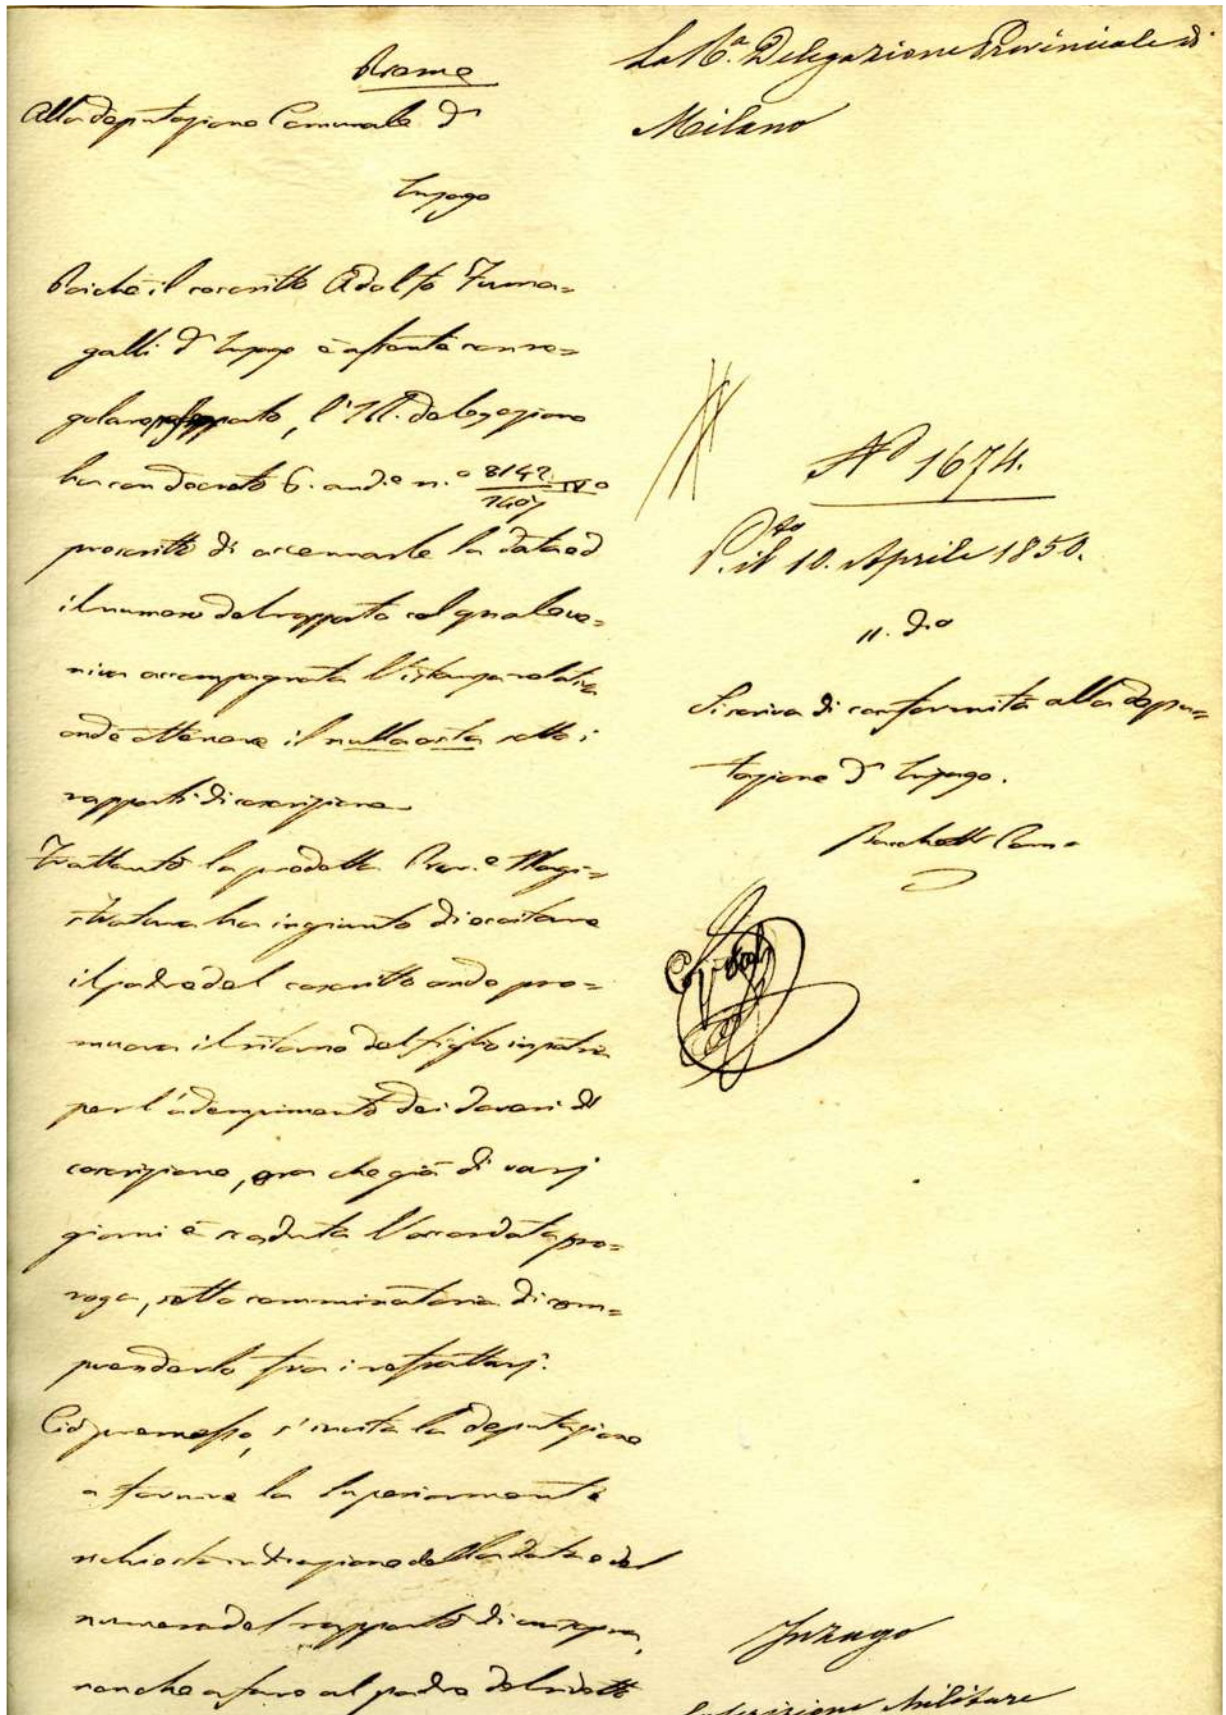 Preme
Alla deputazione Comunale di
Inzago
Poichè il coscritto Adolfo Fuma=
galli d'Inzago è assente con re=
golare passaporto, l'I.R. delegazione
ha con decreto 6. and.e n.o 8142/1407
prescritto di accennarle la data ed
il numero del rapporto col quale ve=
niva accompagnata l'istanza relativa
onde ottenere il nulla osta sotto i
rapporti di coscrizione
Frattanto la predetta Prov.e Magi=
stratura ha ingiunto di eccitare
il padre del coscritto onde pro=
muova il ritorno del figlio in patria
per l'adempimento dei doveri di
coscrizione, ora che già di varj
giorni è scaduta l'accordata pro=
roga, sotto comminatoria di com=
prenderlo fra i refrattarj.
Ciò premesso, s'invita la deputazione
a fornire la superiormente
richiesta indicazione della data e del
numero del rapporto di cui sopra,
nonchè a fare al padre del ridetto
La R.a Delegazione Provinciale di
Milano
N.o 1674.
P.to il 10. Aprile 1850.
11. d.o
Si scriva di conformità alla depu=
tazione d'Inzago.
Inzago
Coscrizione Militare